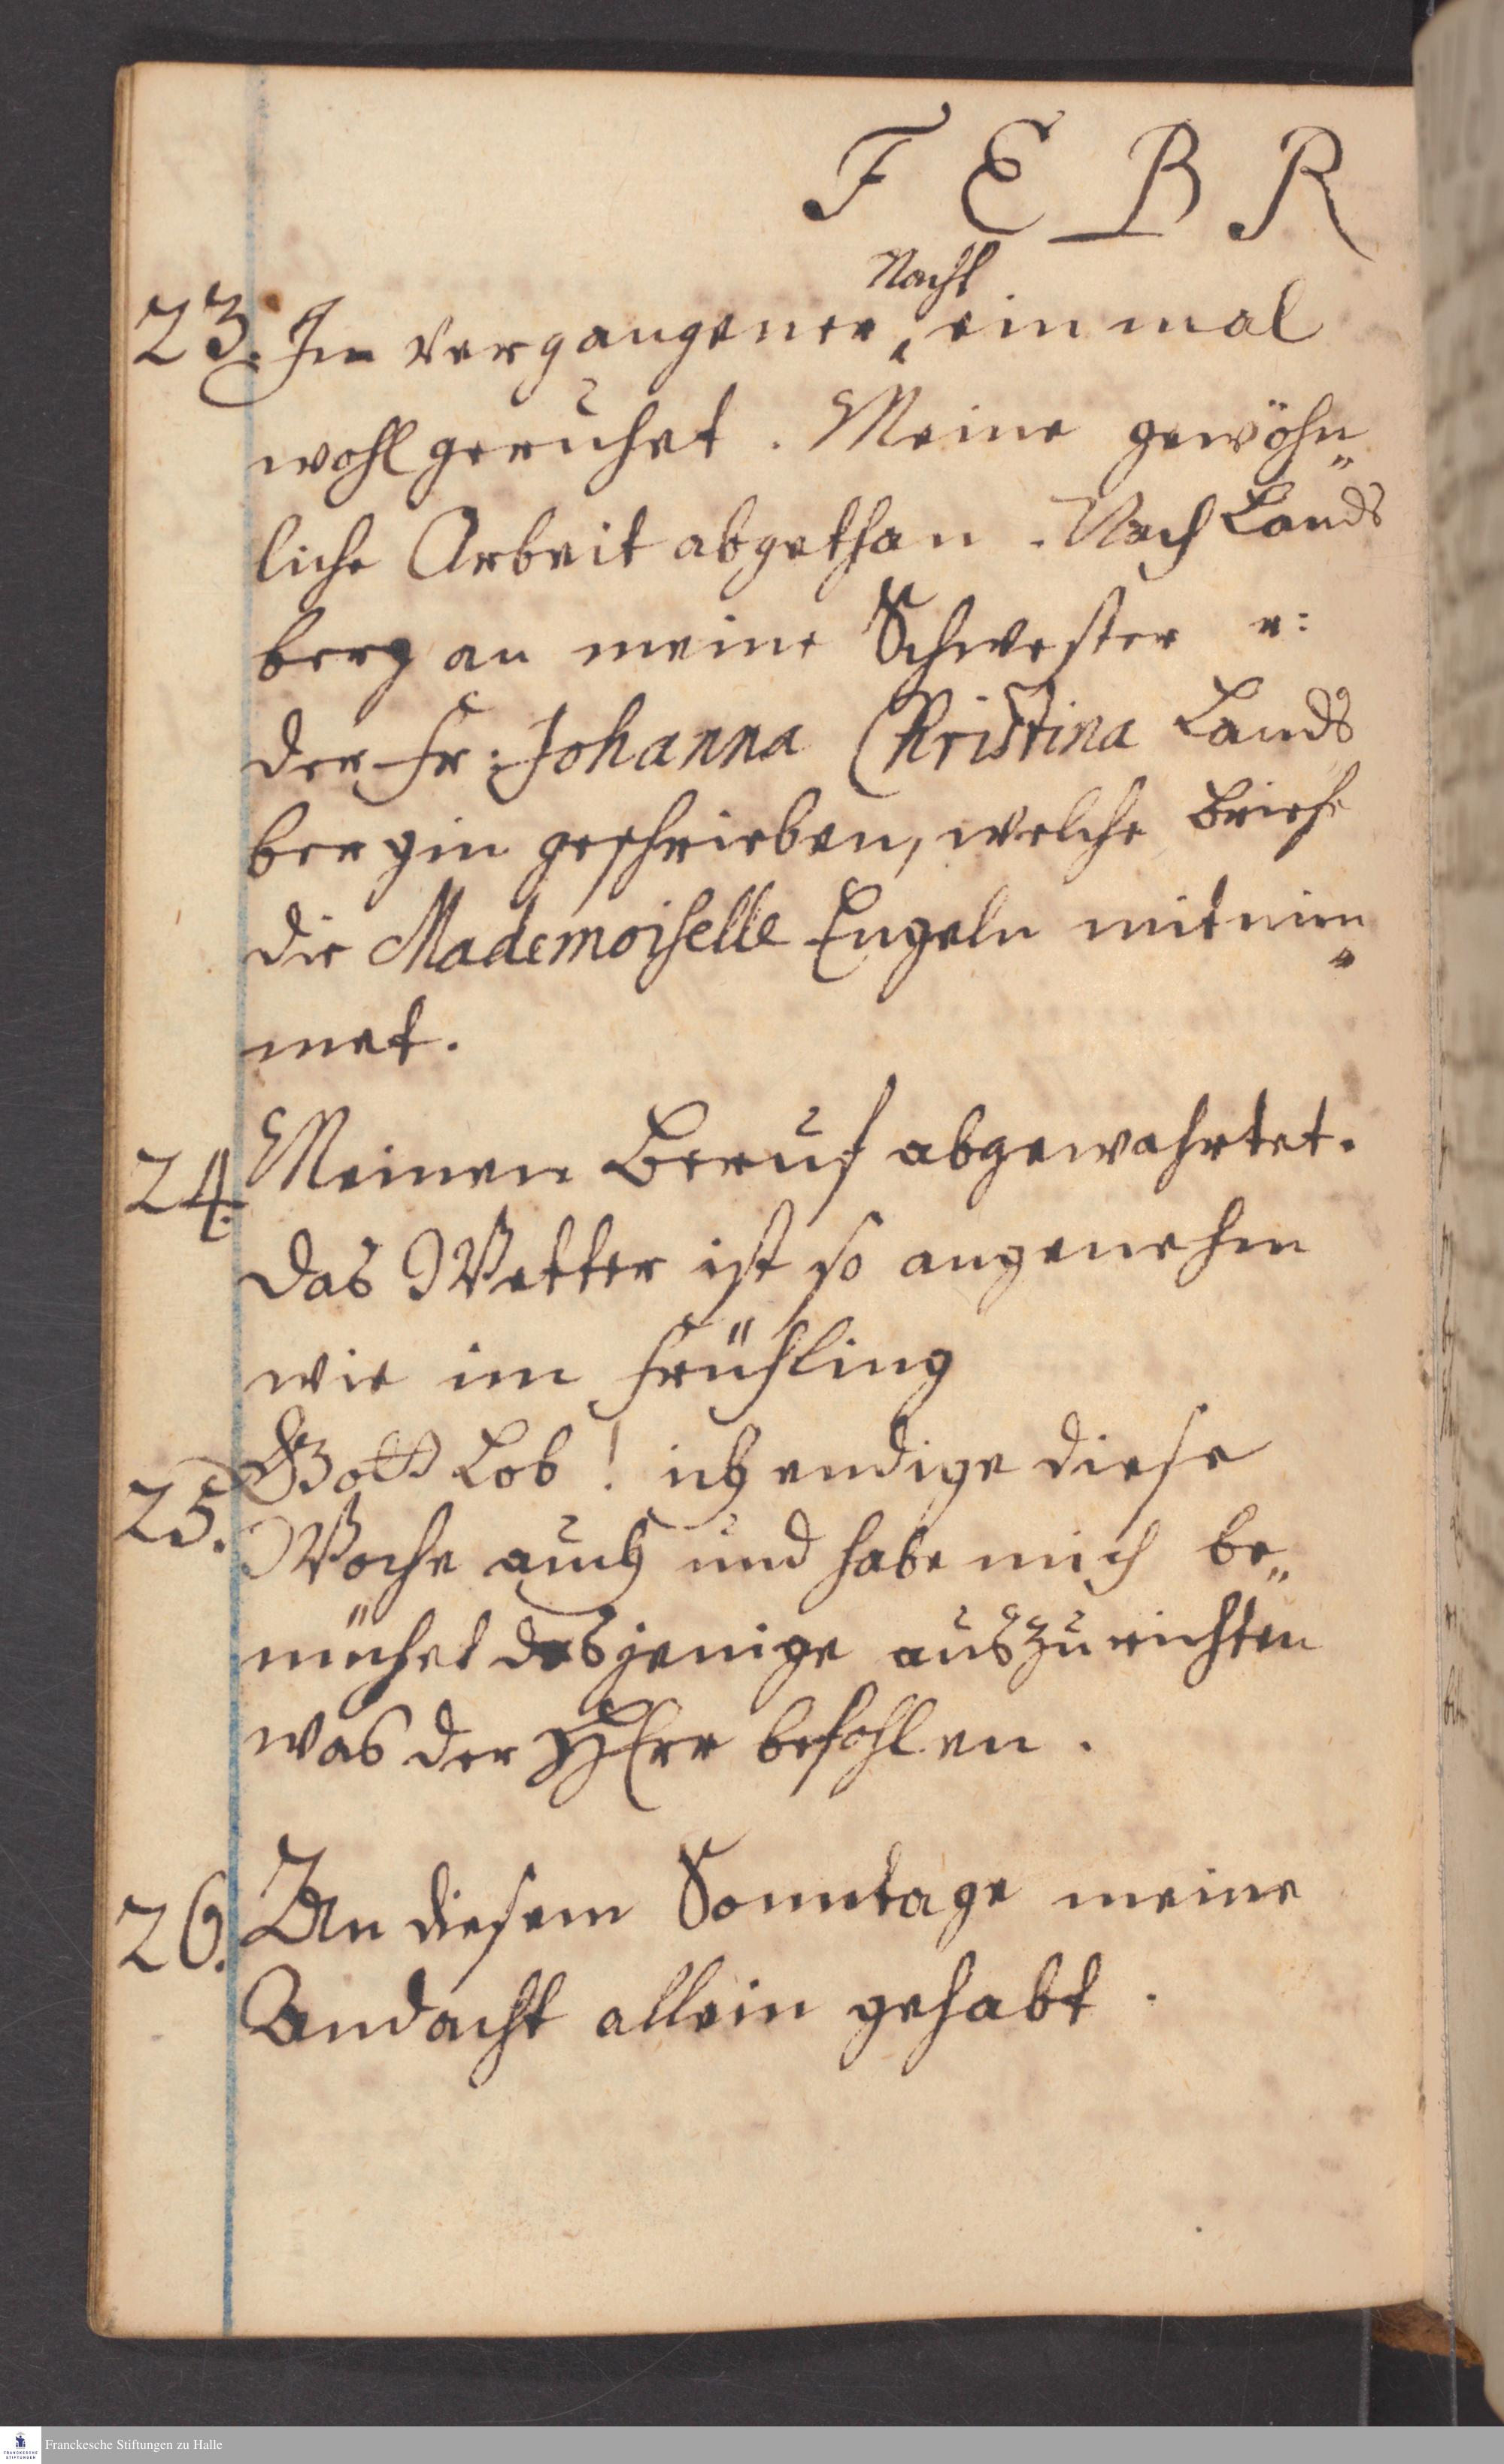 FEBR
23. In vergangener Nacht einmal
wohl geruhet. Meine gewöhn„
liche Arbeit abgethan. Nach Lands
berg an meine Schwester u:
der Fr: Johanna Christina Lands
bergin geschrieben, welche Briefe
die Mademoiselle Engeln mitnim„
met.
24. Meinen Beruf abgewahrtet.
Das Wetter ist so angenehm
wie im Frühling
25. Gott Lob! ich endige diese
Woche auch und habe mich be„
mühet dasjenige auszurichten
was der HErr befohlen.
26. An diesem Sonntage meine
Andacht allein gehabt.
FRANCKESCHE STIFTUNGEN
Franckesche Stiftungen zu Halle